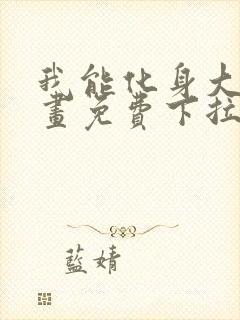 我能化身大
画免費下拉
藍婧